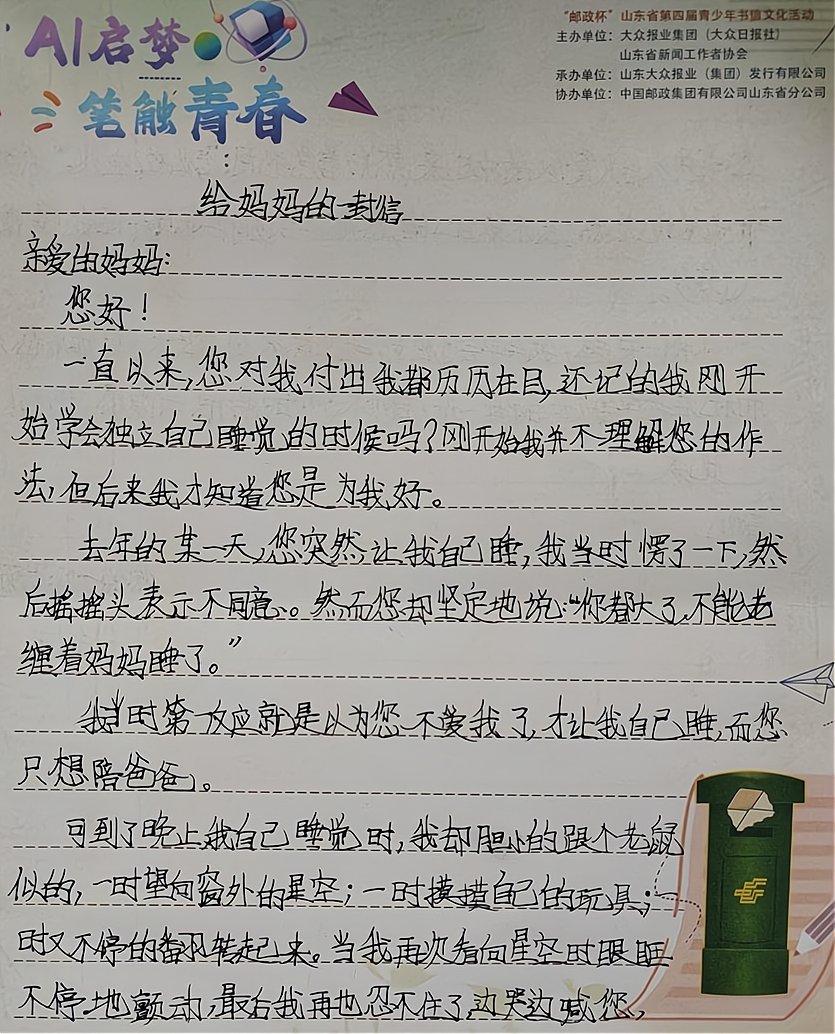 AI启梦
笔触青春
“邮政杯”山东省第四届青少年书信文化活动
主办单位：大众报业集团（大众日报社）
山东省新闻工作者协会
承办单位：山东大众报业（集团）发行有限公司
协办单位：中国邮政集团有限公司山东省分公司
给妈妈的一封信
亲爱的妈妈：
您好！
一直以来，您对我付出我都历历在目，还记的我刚开
始学会独立自己睡觉的时候吗？刚开始我并不理解您的作
法，但后来我才知道您是为我好。
去年的某一天，您突然让我自己睡，我当时愣了一下，然
后摇摇头表示不同意。然而您却坚定地说：“你都大了，不能老
缠着妈妈睡了。”
我当时第一反应就是以为您不爱我了，才让我自己睡，而您
只想陪爸爸。
可到了晚上我自己睡觉时，我却胆小的跟个老鼠
似的，一时望向窗外的星空；一时摸摸自己的玩具；一
时又不停的翻转起来。当我再次看向星空时眼眶
不停地颤动，最后我再也忍不住了，边哭边喊您，